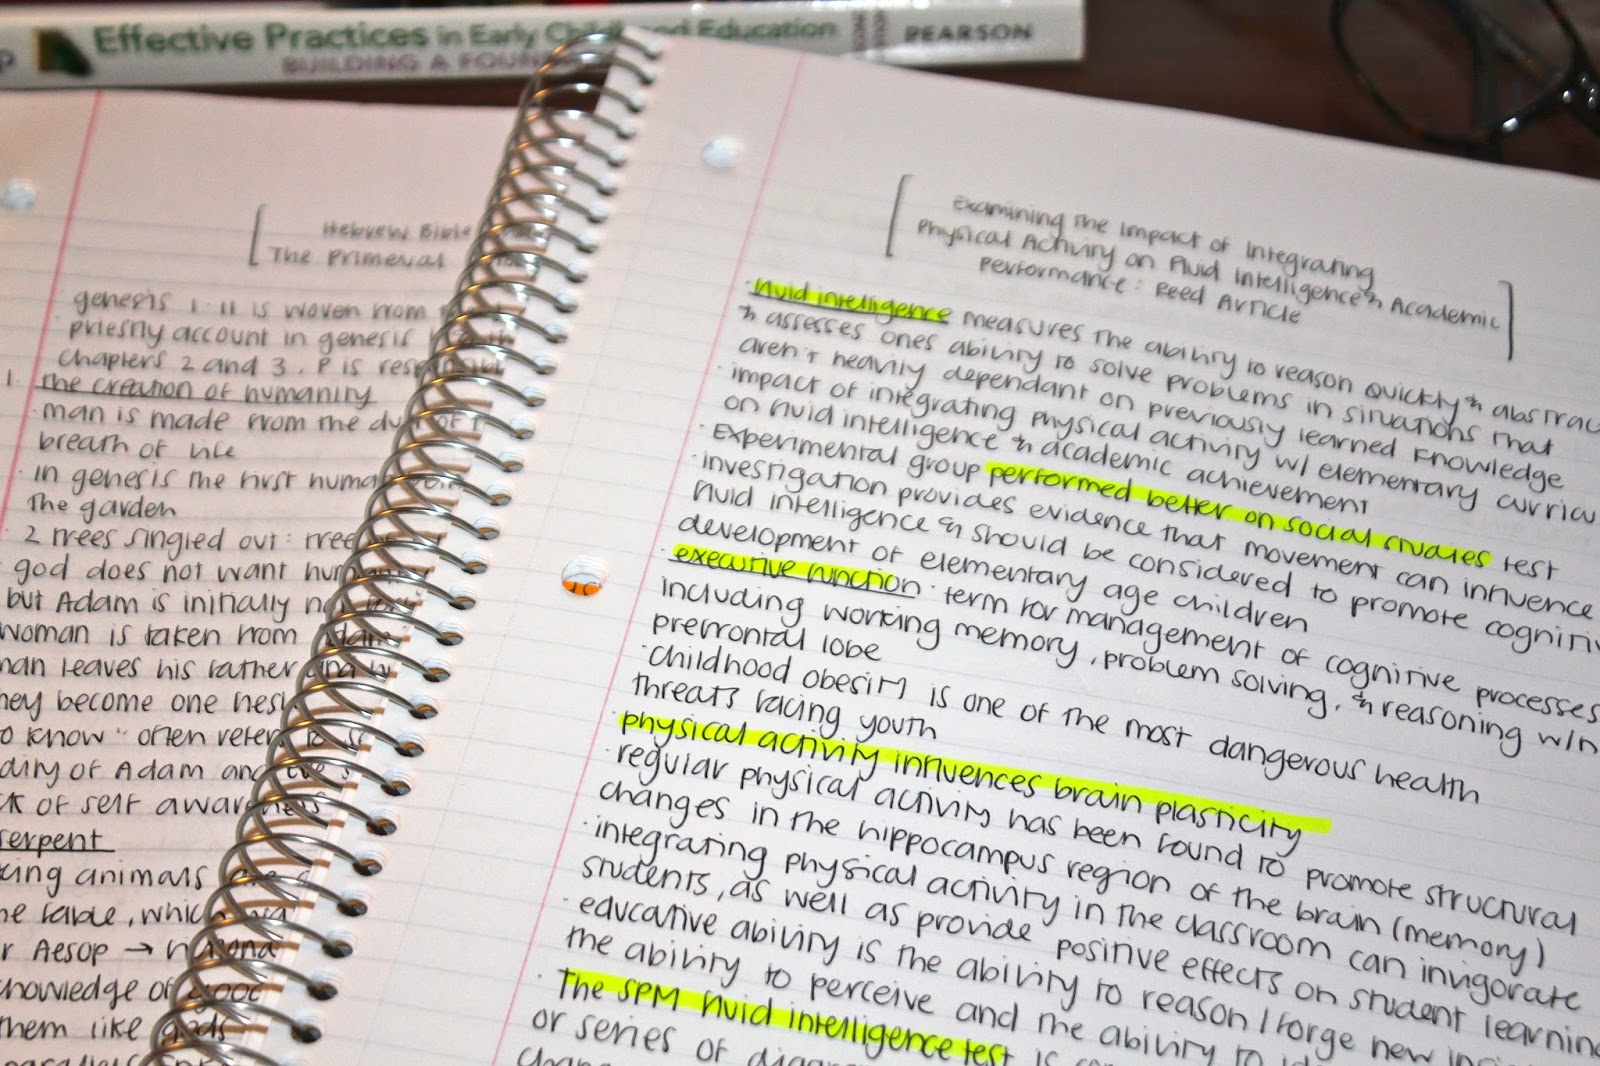 Effective Practices in Early Childhood Education
BUILDING A FOUN
PEARSON
Hebrew Bible
The Primeval
genesis 1-11 is woven from
priestly account in genesis
chapters 2 and 3. P is
1. the creation of humanity
man is made from the dust of
breath of life
· in genesis the first human
the garden
· 2 trees singled out: tree
god does not want humanity
but Adam is initially not
woman is taken from Adam
man leaves his father and
they become one flesh
to know" often refers to
of Adam and Eve's
of self awareness
serpent
animals
fable, which
r Aesop →
knowledge of good
them like gods
Examining the Impact of Integrating
Physical Activity on Fluid Intelligence & Academic
Performance: Reed Article
· fluid intelligence measures the ability to reason quickly & abstrac
& assesses ones ability to solve problems in situations that
aren't heavily dependant on previously learned knowledge
· impact of integrating physical activity w/ elementary curricu
on fluid intelligence & academic achievement
· Experimental group performed better on social studies test
· investigation provides evidence that movement can influence
fluid intelligence & should be considered to promote cogniti
development of elementary age children
· executive function · term for management of cognitive processes
including working memory, problem solving, & reasoning w/in
prefrontal lobe
· childhood obesity is one of the most dangerous health
threats facing youth
· physical activity influences brain plasticity
· regular physical activity has been found to promote structural
changes in the hippocampus region of the brain (memory)
· integrating physical activity in the classroom can invigorate
students, as well as provide positive effects on student learning
· educative ability is the ability to reason/forge new
the ability to perceive and the ability to
· The SPM fluid intelligence test is
or series of